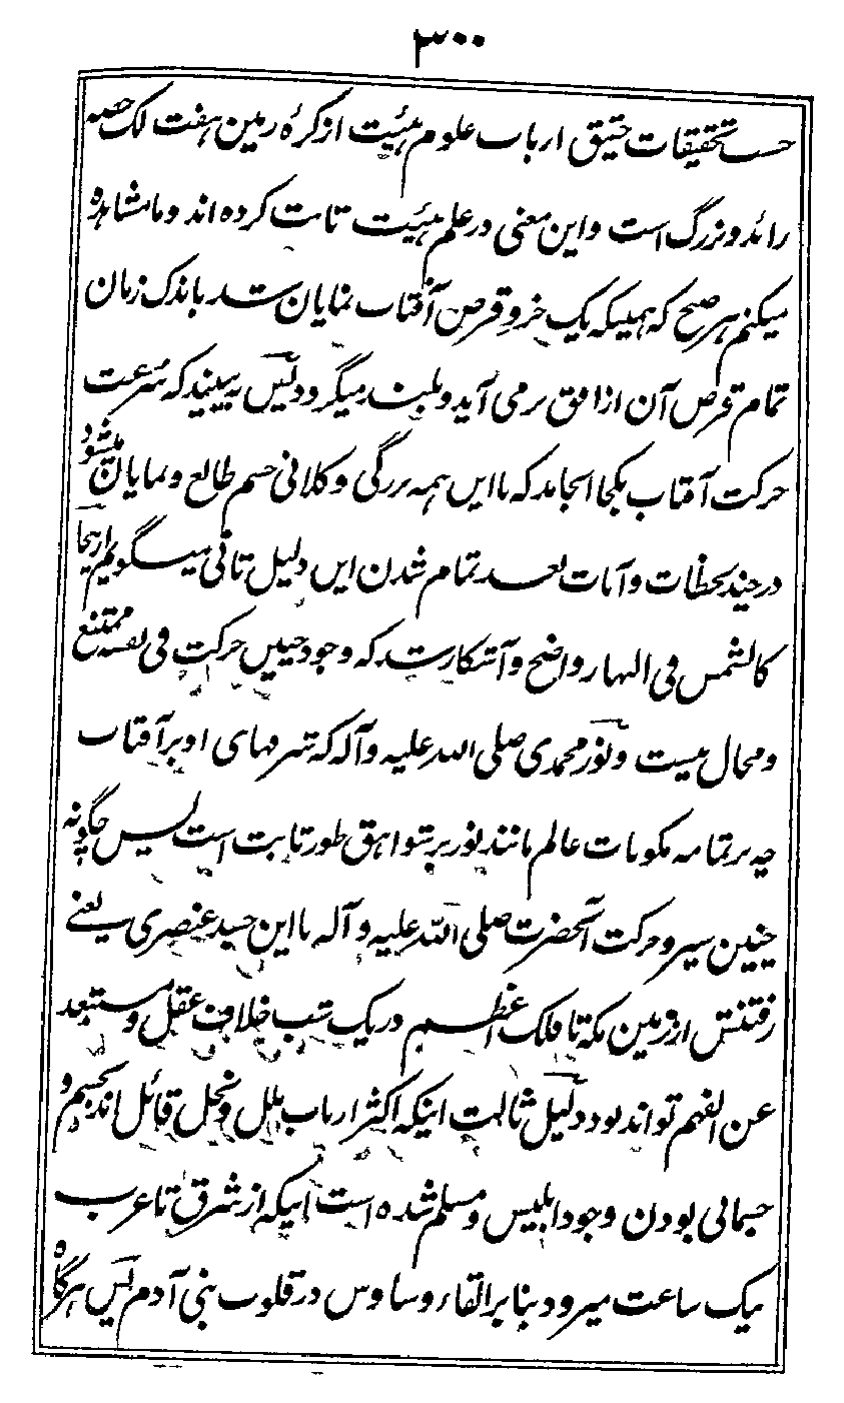 ۳۰۰
حسب تحقیقات حقیق ارباب علوم هیئت از کرهٔ زمین هفت لک حصه
زائد و بزرگ است و این معنی در علم هیئت ثابت کرده اند و ما مشاهده
میکنم هر صبح که همینکه یک خرو قرص آفتاب نمایان شد باندک زمان
تمام قرص آن از افق برمی آید و بلند میگردد پس به بینید که سرعت
حرکت آفتاب بکجا انجامد که باایں همه بزرگی و کلانی جسم طالع و نمایان میشود
در چند لحظات و آنات بعد تمام شدن ایں دلیل ثانی میگویم ازینجا
کالشمس فی النهار واضح و آشکار شد که وجود چنیں حرکت فی نفسه ممتنع
و محال نیست و نور محمدی صلی الله علیه و آله که شرفهای او بر آفتاب
چه بر تمامه مکونات عالم مانند نور بر شواهق طور ثابت است پس چگونه
چنین سیر و حرکت آنحضرت صلی الله علیه و آله باین جسد عنصری یعنے
رفتنش از زمین مکه تا فلک اعظم در یک شب خلاف عقل و مستبعد
عن الفهم تواند بود دلیل ثالث اینکه اکثر ارباب ملل و نحل قائل اند بجسم و
جسمانی بودن وجود ابلیس و مسلم شده است اینکه از شرق تا غرب
بیک ساعت میرود بنا بر القاء وساوس در قلوب بنی آدم پس هرگاه